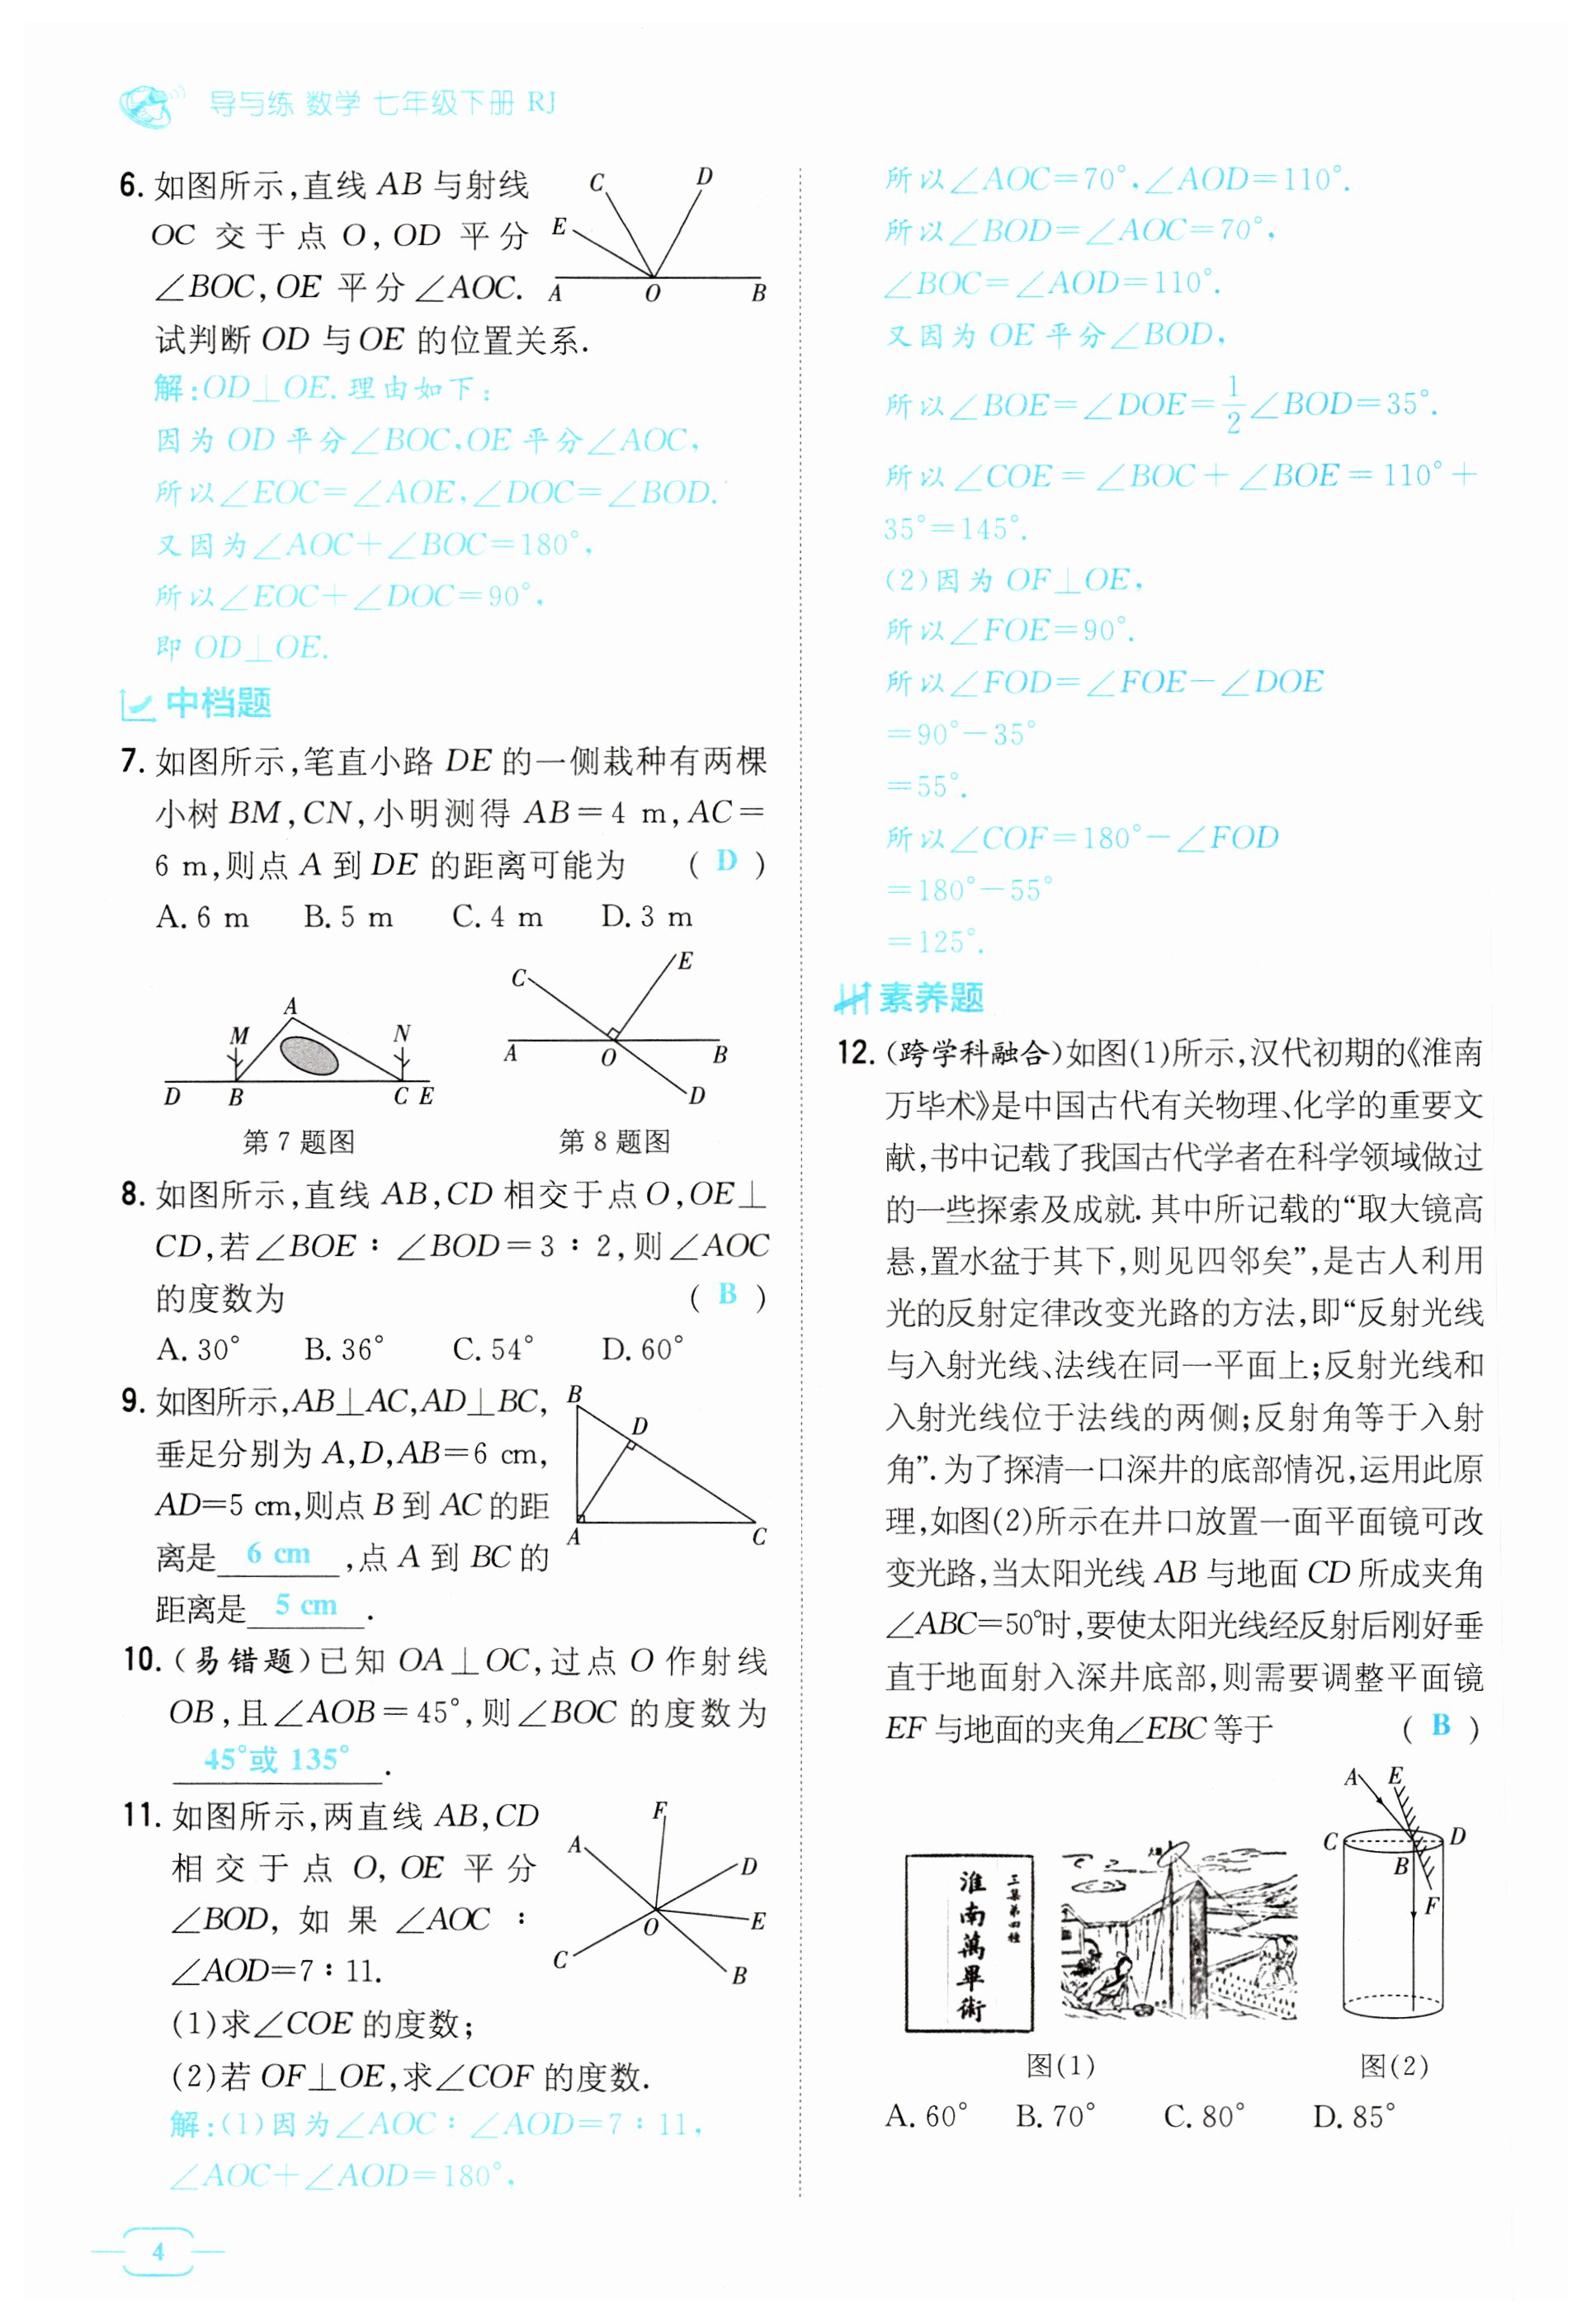 导与练 数学 七年级下册 RJ
6. 如图所示,直线 AB 与射线
OC 交于点 O,OD 平分
∠BOC,OE 平分∠AOC.
试判断 OD 与 OE 的位置关系.
C
D
E
A
O
B
解:OD⊥OE.理由如下:
因为 OD 平分∠BOC,OE 平分∠AOC,
所以∠EOC=∠AOE,∠DOC=∠BOD.
又因为∠AOC+∠BOC=180°,
所以∠EOC+∠DOC=90°,
即 OD⊥OE.
中档题
7. 如图所示,笔直小路 DE 的一侧栽种有两棵
小树 BM,CN,小明测得 AB=4 m,AC=
6 m,则点 A 到 DE 的距离可能为 ( D )
A. 6 m B. 5 m C. 4 m D. 3 m
A
M
N
D B C E
第 7 题图
C
E
A
O
B
D
第 8 题图
8. 如图所示,直线 AB,CD 相交于点 O,OE⊥
CD,若∠BOE∶∠BOD=3∶2,则∠AOC
的度数为 ( B )
A. 30° B. 36° C. 54° D. 60°
9. 如图所示,AB⊥AC,AD⊥BC,
垂足分别为 A,D,AB=6 cm,
AD=5 cm,则点 B 到 AC 的距
离是 6 cm ,点 A 到 BC 的
距离是 5 cm .
B
D
A
C
10. (易错题)已知 OA⊥OC,过点 O 作射线
OB,且∠AOB=45°,则∠BOC 的度数为
45°或 135° .
11. 如图所示,两直线 AB,CD
相交于点 O,OE 平分
∠BOD,如果∠AOC∶
∠AOD=7∶11.
(1)求∠COE 的度数;
(2)若 OF⊥OE,求∠COF 的度数.
F
A
D
O
E
C
B
解:(1)因为∠AOC∶∠AOD=7∶11,
∠AOC+∠AOD=180°,
4
所以∠AOC=70°,∠AOD=110°.
所以∠BOD=∠AOC=70°,
∠BOC=∠AOD=110°.
又因为 OE 平分∠BOD,
所以∠BOE=∠DOE=1/2∠BOD=35°.
所以∠COE=∠BOC+∠BOE=110°+
35°=145°.
(2)因为 OF⊥OE,
所以∠FOE=90°.
所以∠FOD=∠FOE-∠DOE
=90°-35°
=55°.
所以∠COF=180°-∠FOD
=180°-55°
=125°.
素养题
12. (跨学科融合)如图(1)所示,汉代初期的《淮南
万毕术》是中国古代有关物理、化学的重要文
献,书中记载了我国古代学者在科学领域做过
的一些探索及成就. 其中所记载的“取大镜高
悬,置水盆于其下,则见四邻矣”,是古人利用
光的反射定律改变光路的方法,即“反射光线
与入射光线、法线在同一平面上;反射光线和
入射光线位于法线的两侧;反射角等于入射
角”. 为了探清一口深井的底部情况,运用此原
理,如图(2)所示在井口放置一面平面镜可改
变光路,当太阳光线 AB 与地面 CD 所成夹角
∠ABC=50°时,要使太阳光线经反射后刚好垂
直于地面射入深井底部,则需要调整平面镜
EF 与地面的夹角∠EBC 等于 ( B )
三集第四种
淮南萬畢術
图(1)
A
E
C
D
B
F
图(2)
A. 60° B. 70° C. 80° D. 85°